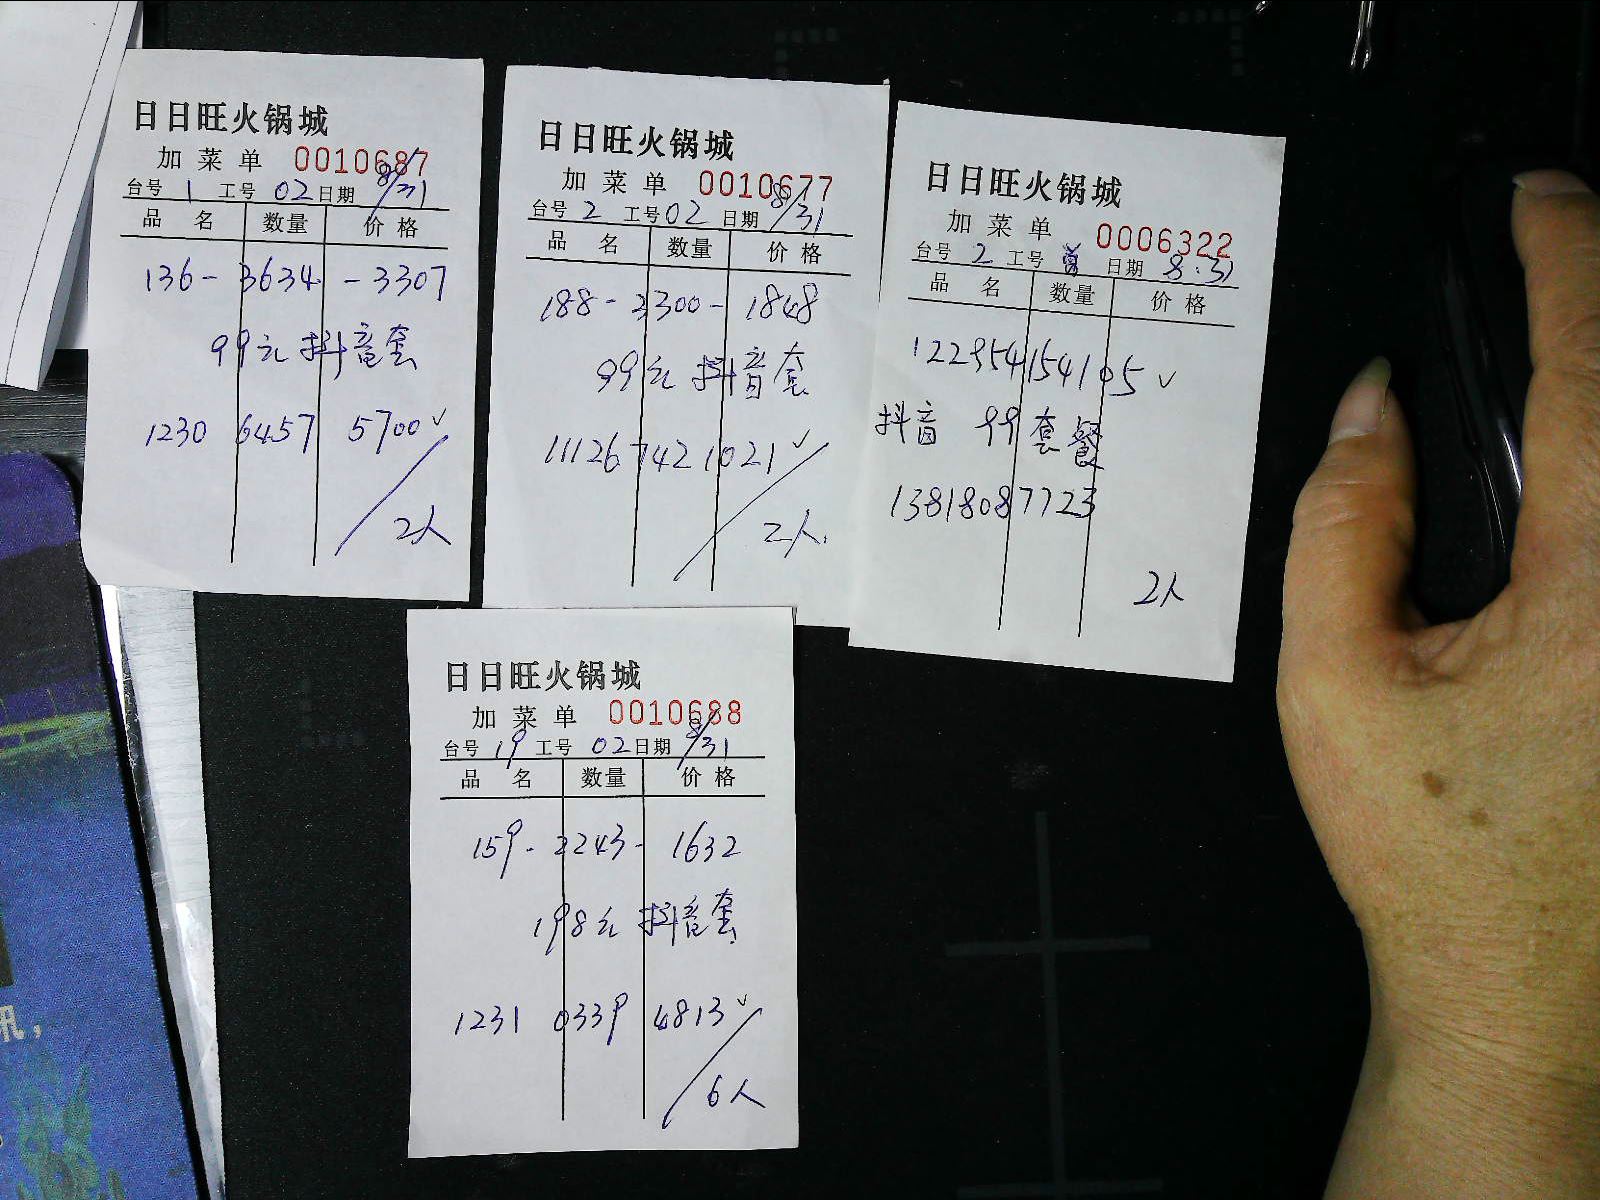 日日旺火锅城
加菜单 0010687
台号 1 工号 02 日期 8/31
品名 数量 价格
136-3634-3307
99元抖音套
1230 6457 5700✓
2人
日日旺火锅城
加菜单 0010677
台号 2 工号 02 日期 8/31
品名 数量 价格
188-3300-1848
99元抖音套
11126742 1021✓
2人
日日旺火锅城
加菜单 0006322
台号 2 工号 日期 8.31
品名 数量 价格
122954154105✓
抖音 99套餐
13818087723
2人
日日旺火锅城
加菜单 0010688
台号 19 工号 02 日期 8/31
品名 数量 价格
159-2243-1632
198元抖音套
1231 0339 4813✓
6人
讯，